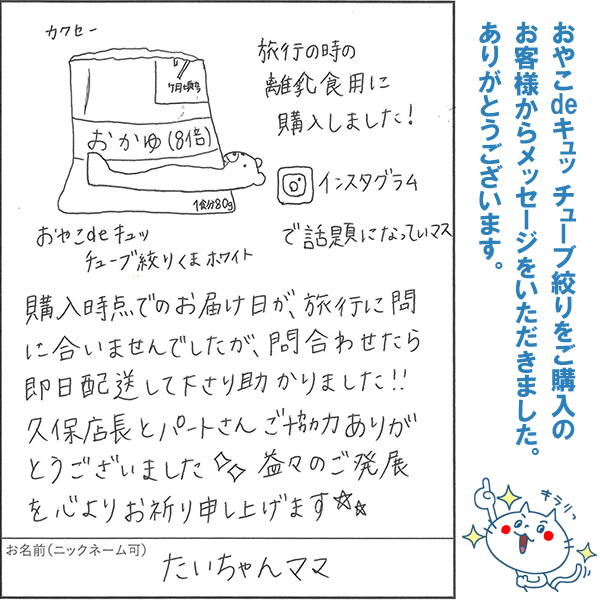 おやこdeキュッ チューブ絞りをご購入の
お客様からメッセージをいただきました。
ありがとうございます。
カクセー
7ヶ月頃
おかゆ(8倍)
1食分80g
おやこdeキュッ
チューブ絞りくまホワイト
旅行の時の
離乳食用に
購入しました!
インスタグラム
で話題になっていマス
購入時点でのお届け日が、旅行に間
に合いませんでしたが、問合わせたら
即日配送して下さり助かりました!!
久保店長とパートさんご協力ありが
とうございました 益々のご発展
を心よりお祈り申し上げます
お名前(ニックネーム可)
たいちゃんママ
キラリっ